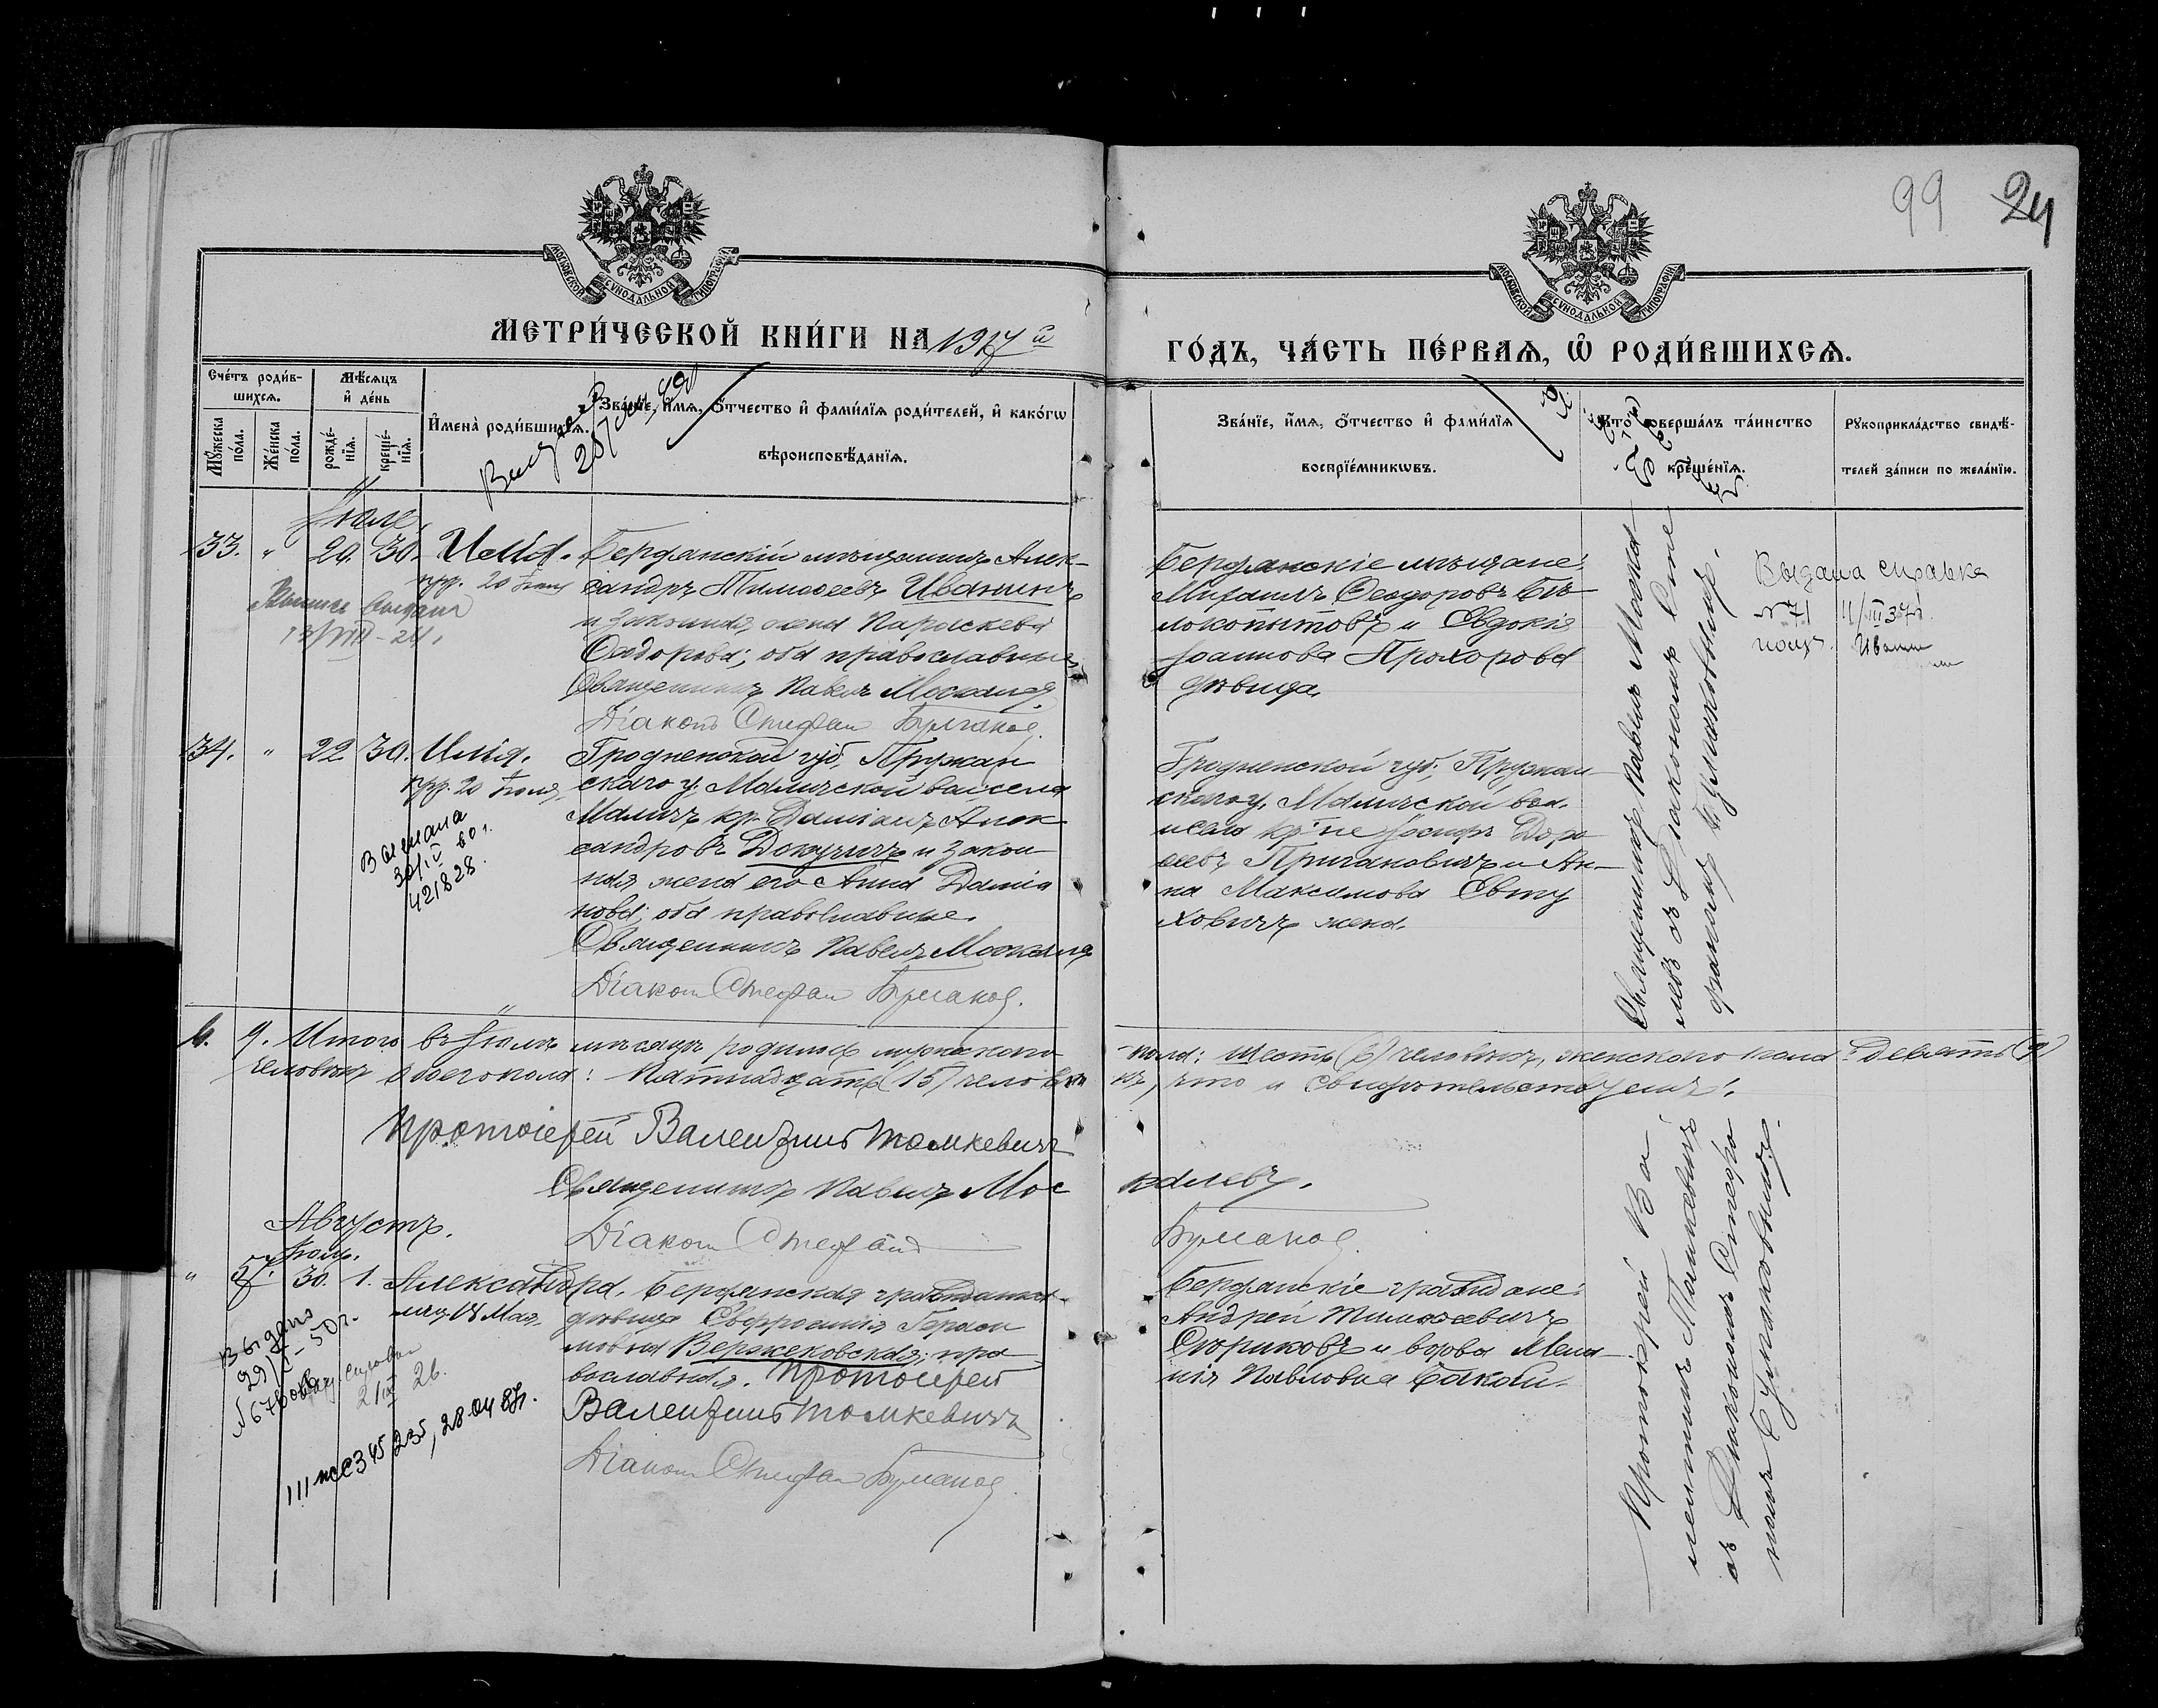 99 24
МОСКОВСКОЙ СѴНОДАЛЬНОЙ ТИПОГРАФІИ
МОСКОВСКОЙ СѴНОДАЛЬНОЙ ТИПОГРАФІИ
МЕТРИ́ЧЕСКОЙ КНИ́ГИ НА 1917 й
ГО́ДЪ, ЧА́СТЬ ПЕ́РВАѦ, Ѽ РОДИ́ВШИХСѦ.
Счётъ роди́в-
шихсѧ.
Мꙋ́жеска по́ла.
Же́нска по́ла.
Мѣ́сѧцъ
и҆ де́нь
рожде́-
нїѧ.
креще́-
нїѧ.
И҆мена̀ роди́вшихсѧ.
Зва́нїе, и҆́мѧ, ѻ҆́тчество и҆ фами́лїѧ роди́телей, и҆ како́гѡ
вѣроисповѣ́данїѧ.
Зва́нїе, и҆́мѧ, ѻ҆́тчество и҆ фами́лїѧ
воспрїе́мникѡвъ.
Кто̀ соверша́лъ та́инство
креще́нїѧ.
Рꙋкоприкла́дство свидѣ́-
телей за́писи по жела́нїю.
Іюль
33. " 20. 30. Илія.
пр. 20 Іюля
13/VIII - 24.
Бердянскій мѣщанинъ Алек-
сандръ Тимоѳеевъ Иванинъ
и законная жена Параскева
Ѳеодорова; оба православные
Священникъ Павелъ Москалевъ
Діаконъ Стефан
Бердянскіе мѣщане:
Михаилъ Ѳеодоровъ Бѣ-
локопытовъ и Евдокія
Іоаннова Прохорова
дѣвица.
Священникъ Павелъ Моска-
левъ съ Діакономъ Сте
фаномъ
Выдана справка
№71 11/VII 37г.
34. " 22 30. Илія.
пр. 20 Іюля,
Выдана
30/IV 60 г.
421828.
Гродненской губ, Пружан
скаго у. Малечской вол. села
Малечъ кр. Даміанъ Алек
сандровъ Докучичъ и закон
ная жена его Анна Даміа
нова; оба православные.
Священникъ Павелъ Москалевъ
Діакон Стефан
Гродненской губ, Пружан-
скаго у. Малечской вол.
и села кр-не Іосифъ Доро
и Ан-
на Максимова Евту
ховичъ жена.
6. 9. Итого въ Іюлѣ мѣсяцѣ родилось мужского
пола: шесть (6) человѣкъ, женского пола: девять (9)
человѣкъ обоего пола: пятнадцать (15) человѣ
къ, что и свидѣтельствуемъ:
Протоіерей Валентинъ Томкевичъ
Священникъ Павелъ Мос
калевъ.
Діакон Стефанъ
Августъ.
Іюль.
" 37. 30. 1. Александра.
мч. 18 Мая.
Выдано
29/X - 50г.
21/IX 26.
III псе 345235, 28.04 87г.
Бердянская гражданка
дѣвица Евфросинія Гераси
мовна Вержековская; пра
вославная. Протоіерей
Валентинъ Томкевичъ
Діакон Стефан
Бердянскіе граждане:
Андрей Тимоѳеевичъ
Скориковъ и вдова Мела
нія Павловна
Протоіерей Ва
лентинъ Томкевичъ
съ Діакономъ Стефа
номъ